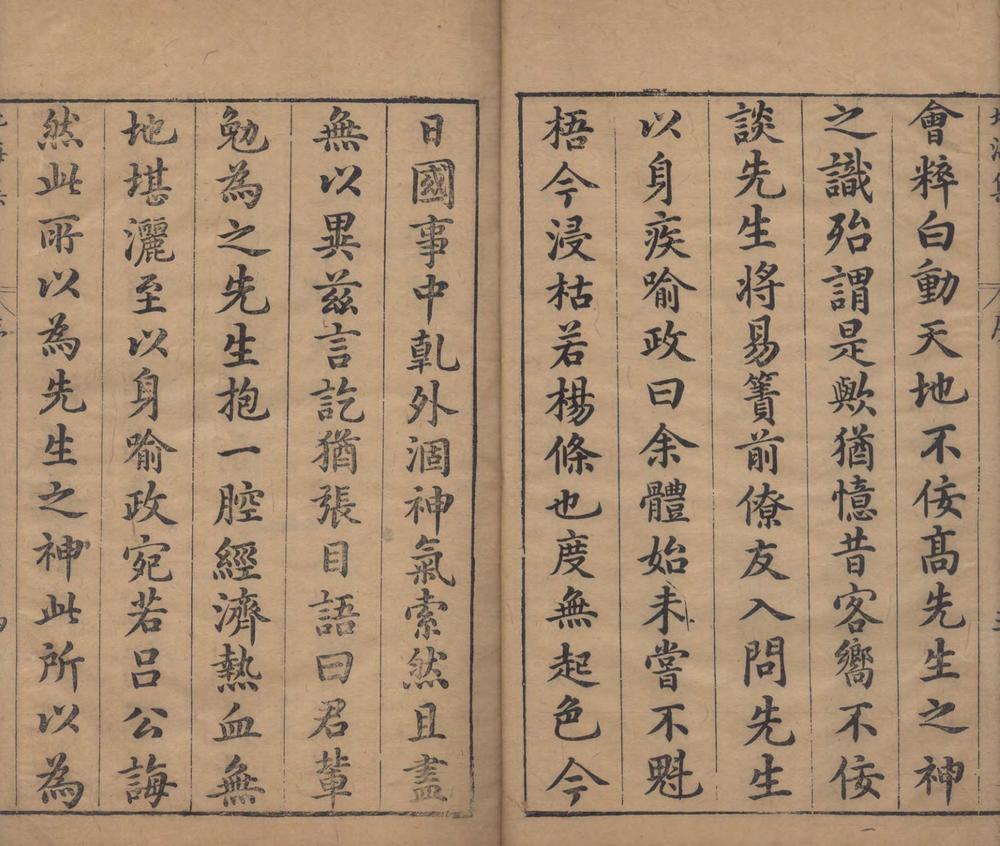 會粹白動天地不佞高先生之神
之識殆謂是歟猶憶昔客嚮不佞
談先生將易簀前僚友入問先生
以身疾喻政曰余體始未嘗不魁
梧今浸枯若楊條也度無起色今
日國事中乹外涸神氣索然且盡
無以異茲言訖猶張目語曰君輩
勉為之先生抱一腔經濟熱血無
地堪灑至以身喻政宛若呂公誨
然此所以為先生之神此所以為